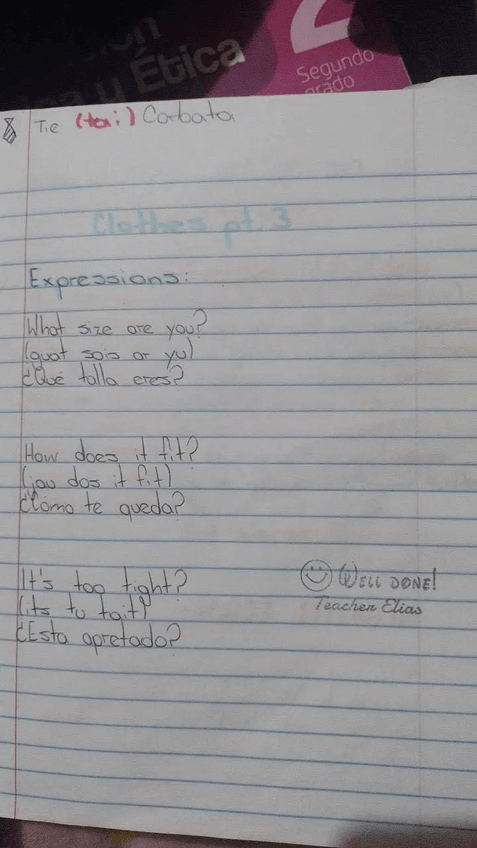 a y Ética
2
Segundo
grado
Tie (tai) Corbata
Clothes pt. 3
Expressions:
What size are you?
(guat sais ar yu)
¿Qué talla eres?
How does it fit?
(jau dos it fit)
¿Cómo te queda?
It's too tight?
(its tu tait)
¿Esta apretado?
Well done!
Teacher Elias